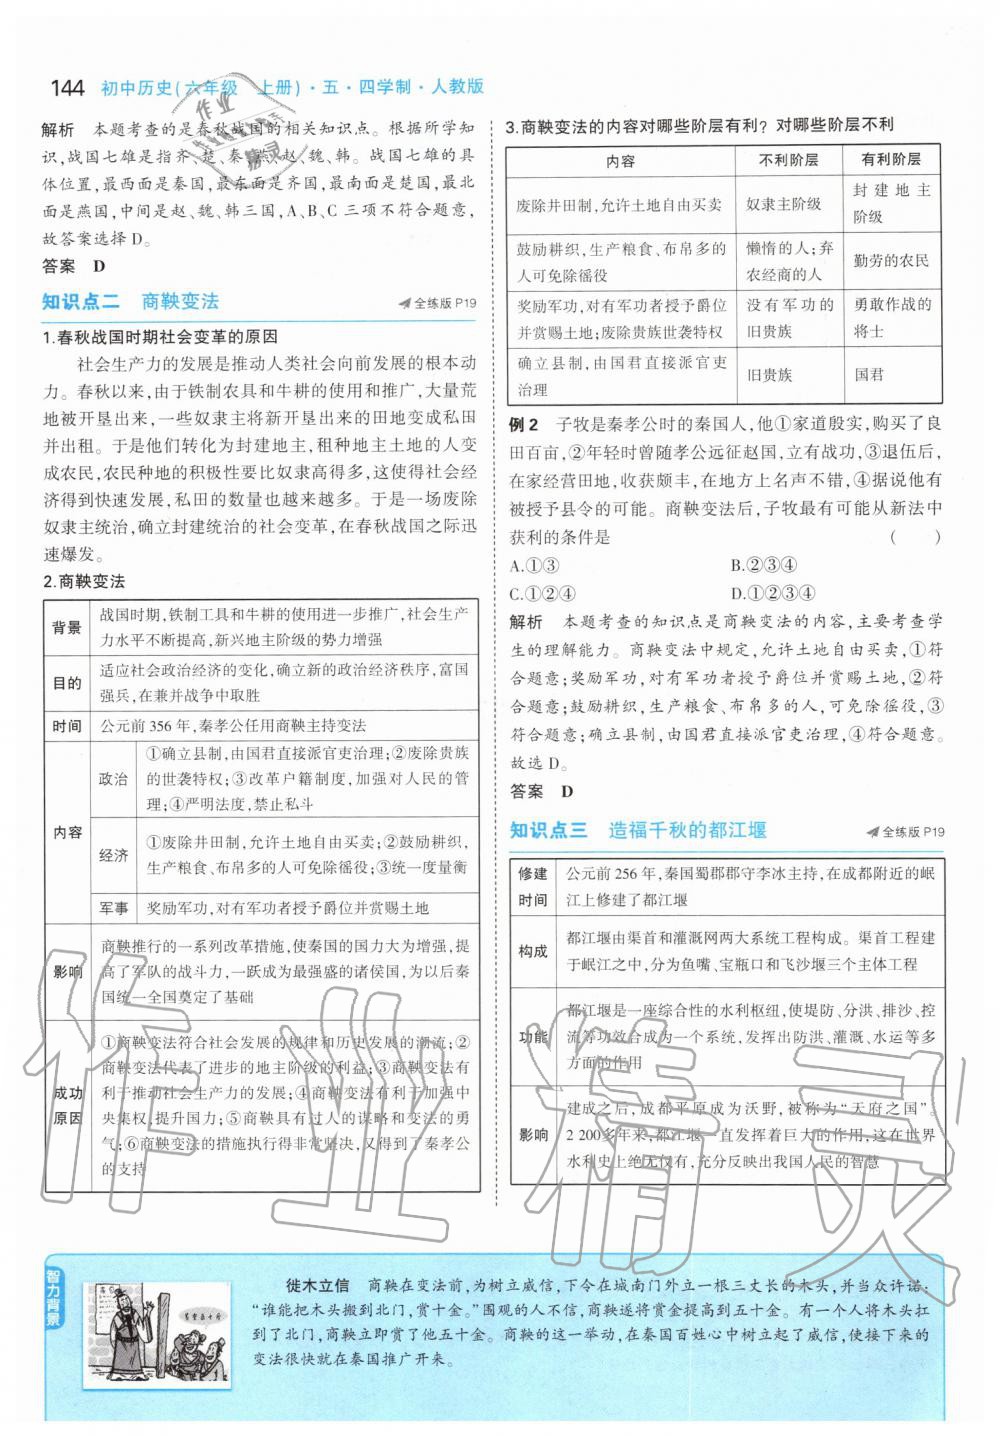 144 初中历史(六年级 上册)·五·四学制·人教版
解析 本题考查的是春秋战国的相关知识点。根据所学知
识,战国七雄是指齐、楚、秦、燕、赵、魏、韩。战国七雄的具
体位置,最西面是秦国,最东面是齐国,最南面是楚国,最北
面是燕国,中间是赵、魏、韩三国,A、B、C三项不符合题意,
故答案选择D。
答案 D
知识点二 商鞅变法 全练版P19
1.春秋战国时期社会变革的原因
社会生产力的发展是推动人类社会向前发展的根本动
力。春秋以来,由于铁制农具和牛耕的使用和推广,大量荒
地被开垦出来,一些奴隶主将新开垦出来的田地变成私田
并出租。于是他们转化为封建地主,租种地主土地的人变
成农民,农民种地的积极性要比奴隶高得多,这使得社会经
济得到快速发展,私田的数量也越来越多。于是一场废除
奴隶主统治,确立封建统治的社会变革,在春秋战国之际迅
速爆发。
2.商鞅变法
背景
战国时期,铁制工具和牛耕的使用进一步推广,社会生产
力水平不断提高,新兴地主阶级的势力增强
目的
适应社会政治经济的变化,确立新的政治经济秩序,富国
强兵,在兼并战争中取胜
时间
公元前356年,秦孝公任用商鞅主持变法
内容
政治
①确立县制,由国君直接派官吏治理;②废除贵族
的世袭特权;③改革户籍制度,加强对人民的管
理;④严明法度,禁止私斗
经济
①废除井田制,允许土地自由买卖;②鼓励耕织,
生产粮食、布帛多的人可免除徭役;③统一度量衡
军事
奖励军功,对有军功者授予爵位并赏赐土地
影响
商鞅推行的一系列改革措施,使秦国的国力大为增强,提
高了军队的战斗力,一跃成为最强盛的诸侯国,为以后秦
国统一全国奠定了基础
成功
原因
①商鞅变法符合社会发展的规律和历史发展的潮流;②
商鞅变法代表了进步的地主阶级的利益;③商鞅变法有
利于推动社会生产力的发展;④商鞅变法有利于加强中
央集权,提升国力;⑤商鞅具有过人的谋略和变法的勇
气;⑥商鞅变法的措施执行得非常坚决,又得到了秦孝公
的支持
3.商鞅变法的内容对哪些阶层有利?对哪些阶层不利
内容 不利阶层 有利阶层
废除井田制,允许土地自由买卖 奴隶主阶级 封建地主
阶级
鼓励耕织,生产粮食、布帛多的 懒惰的人;弃 勤劳的农民
人可免除徭役 农经商的人
奖励军功,对有军功者授予爵位 没有军功的 勇敢作战的
并赏赐土地;废除贵族世袭特权 旧贵族 将士
确立县制,由国君直接派官吏 旧贵族 国君
治理
例2 子牧是秦孝公时的秦国人,他①家道殷实,购买了良
田百亩,②年轻时曾随孝公远征赵国,立有战功,③退伍后,
在家经营田地,收获颇丰,在地方上名声不错,④据说他有
被授予县令的可能。商鞅变法后,子牧最有可能从新法中
获利的条件是 ( )
A.①③ B.②③④
C.①②④ D.①②③④
解析 本题考查的知识点是商鞅变法的内容,主要考查学
生的理解能力。商鞅变法中规定,允许土地自由买卖,①符
合题意;奖励军功,对有军功者授予爵位并赏赐土地,②符
合题意;鼓励耕织,生产粮食、布帛多的人,可免除徭役,③
符合题意;确立县制,由国君直接派官吏治理,④符合题意。
故选D。
答案 D
知识点三 造福千秋的都江堰 全练版P19
修建
时间
公元前256年,秦国蜀郡郡守李冰主持,在成都附近的岷
江上修建了都江堰
构成
都江堰由渠首和灌溉网两大系统工程构成。渠首工程建
于岷江之中,分为鱼嘴、宝瓶口和飞沙堰三个主体工程
功能
都江堰是一座综合性的水利枢纽,使堤防、分洪、排沙、控
流等功效合成为一个系统,发挥出防洪、灌溉、水运等多
方面的作用
影响
建成之后,成都平原成为沃野,被称为“天府之国”。
2 200多年来,都江堰一直发挥着巨大的作用,这在世界
水利史上绝无仅有,充分反映出我国人民的智慧
智力背景
徙木立信 商鞅在变法前,为树立威信,下令在城南门外立一根三丈长的木头,并当众许诺:
“谁能把木头搬到北门,赏十金。”围观的人不信,商鞅遂将赏金提高到五十金。有一个人将木头扛
到了北门,商鞅立即赏了他五十金。商鞅的这一举动,在秦国百姓心中树立起了威信,使接下来的
变法很快就在秦国推广开来。
作业精灵